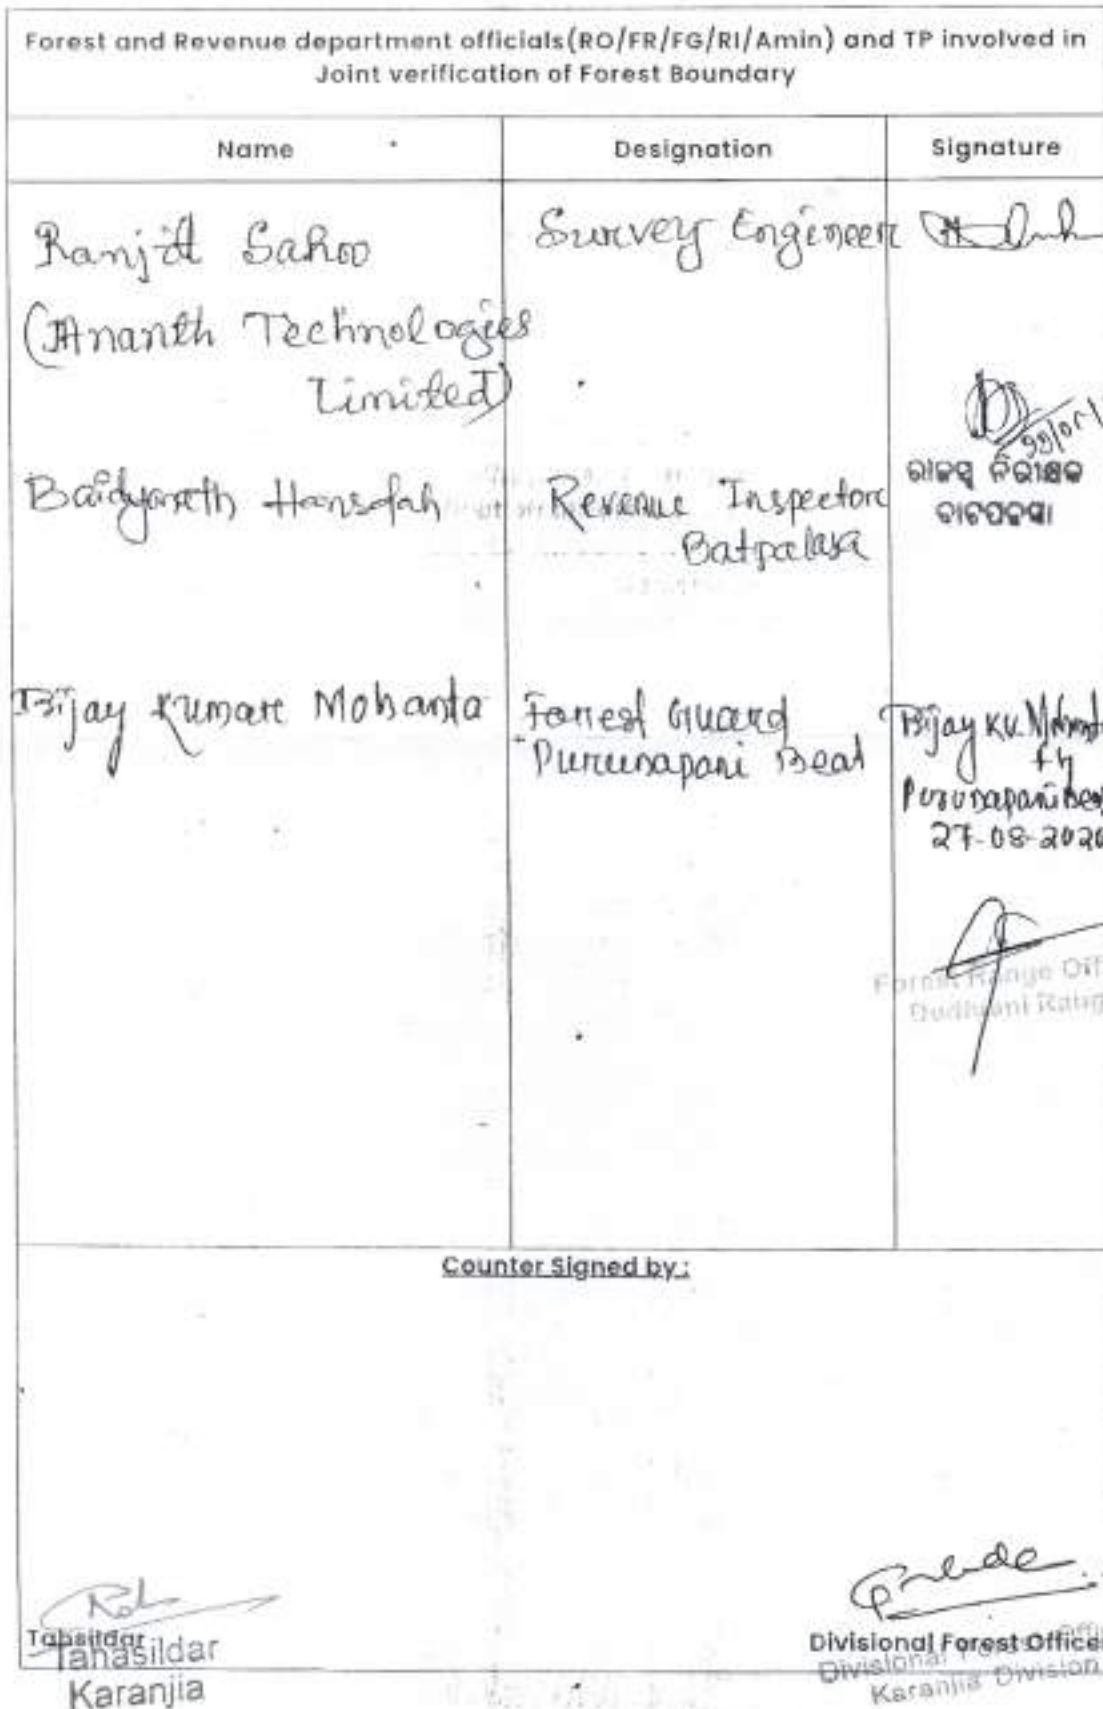 Forest and Revenue department officials(RO/FR/FG/RI/Amin) and TP involved in
Joint verification of Forest Boundary
Name Designation Signature
Ranjit Sahoo Survey Engineer
(Ananth Technologies
Limited)
Baidyanath Hansdah Revenue Inspector
Batpalasa
ରାଜସ୍ୱ ନିରୀକ୍ଷକ
Bijay Kumar Mohanta Forest Guard
Purunapani Beat
Bijay Ku. Mohanta
Purunapani Beat
27-08-2020
Forest Range Off
Dudhiani Rang
Counter Signed by :
Tahsildar
Tahasildar
Karanjia
Divisional Forest Officer
Divisional Forest Offi
Karanjia Division